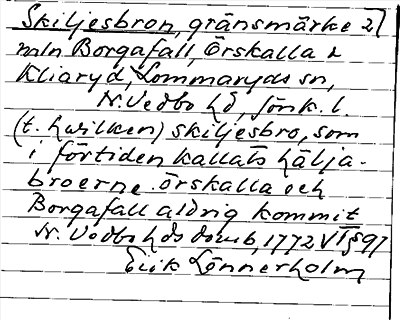 Skiljesbron, gränsmärke
mln Borgafall, Örskalla &
Kliaryd, Lommaryds sn,
N. Vedbo hd, Jönk. l.
(t. hwilken) skiljesbro, som
i förtiden kallats hälja-
broerne. örskalla och
Borgafall aldrig kommit
N. Vedbo hds domb, 1772 VT § 97
Erik Lönnerholm